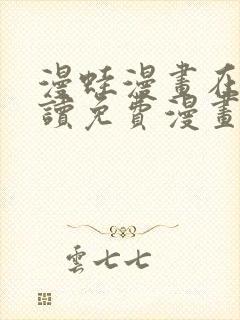 漫蛙漫畫在
讀免費漫畫
雲七七